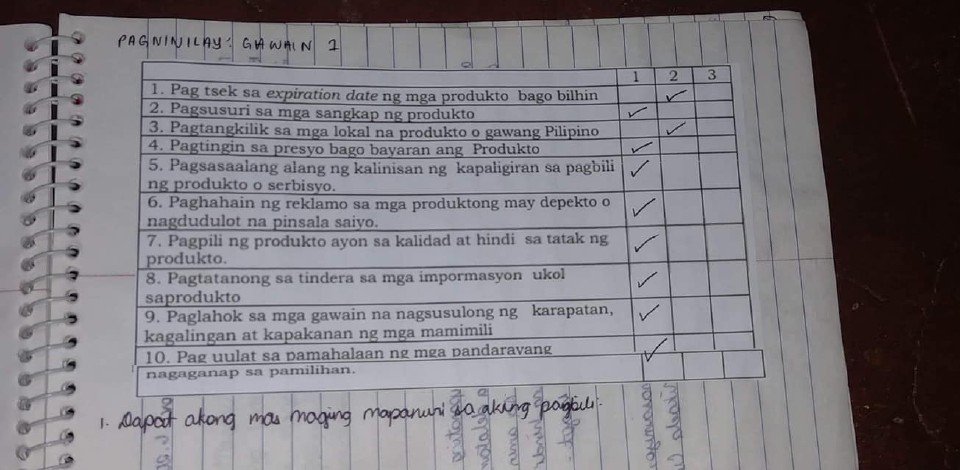 PAGNINILAY: GAWAIN 1
1 2 3
1. Pag tsek sa expiration date ng mga produkto bago bilhin ✓
2. Pagsusuri sa mga sangkap ng produkto ✓
3. Pagtangkilik sa mga lokal na produkto o gawang Pilipino ✓
4. Pagtingin sa presyo bago bayaran ang Produkto ✓
5. Pagsasaalang alang ng kalinisan ng kapaligiran sa pagbili ✓
ng produkto o serbisyo.
6. Paghahain ng reklamo sa mga produktong may depekto o ✓
nagdudulot na pinsala saiyo.
7. Pagpili ng produkto ayon sa kalidad at hindi sa tatak ng ✓
produkto.
8. Pagtatanong sa tindera sa mga impormasyon ukol ✓
saprodukto
9. Paglahok sa mga gawain na nagsusulong ng karapatan, ✓
kagalingan at kapakanan ng mga mamimili
10. Pag uulat sa pamahalaan ng mga pandarayang ✓
nagaganap sa pamilihan.
1. Dapat akong mas maging mapanuri sa aking pagbili.